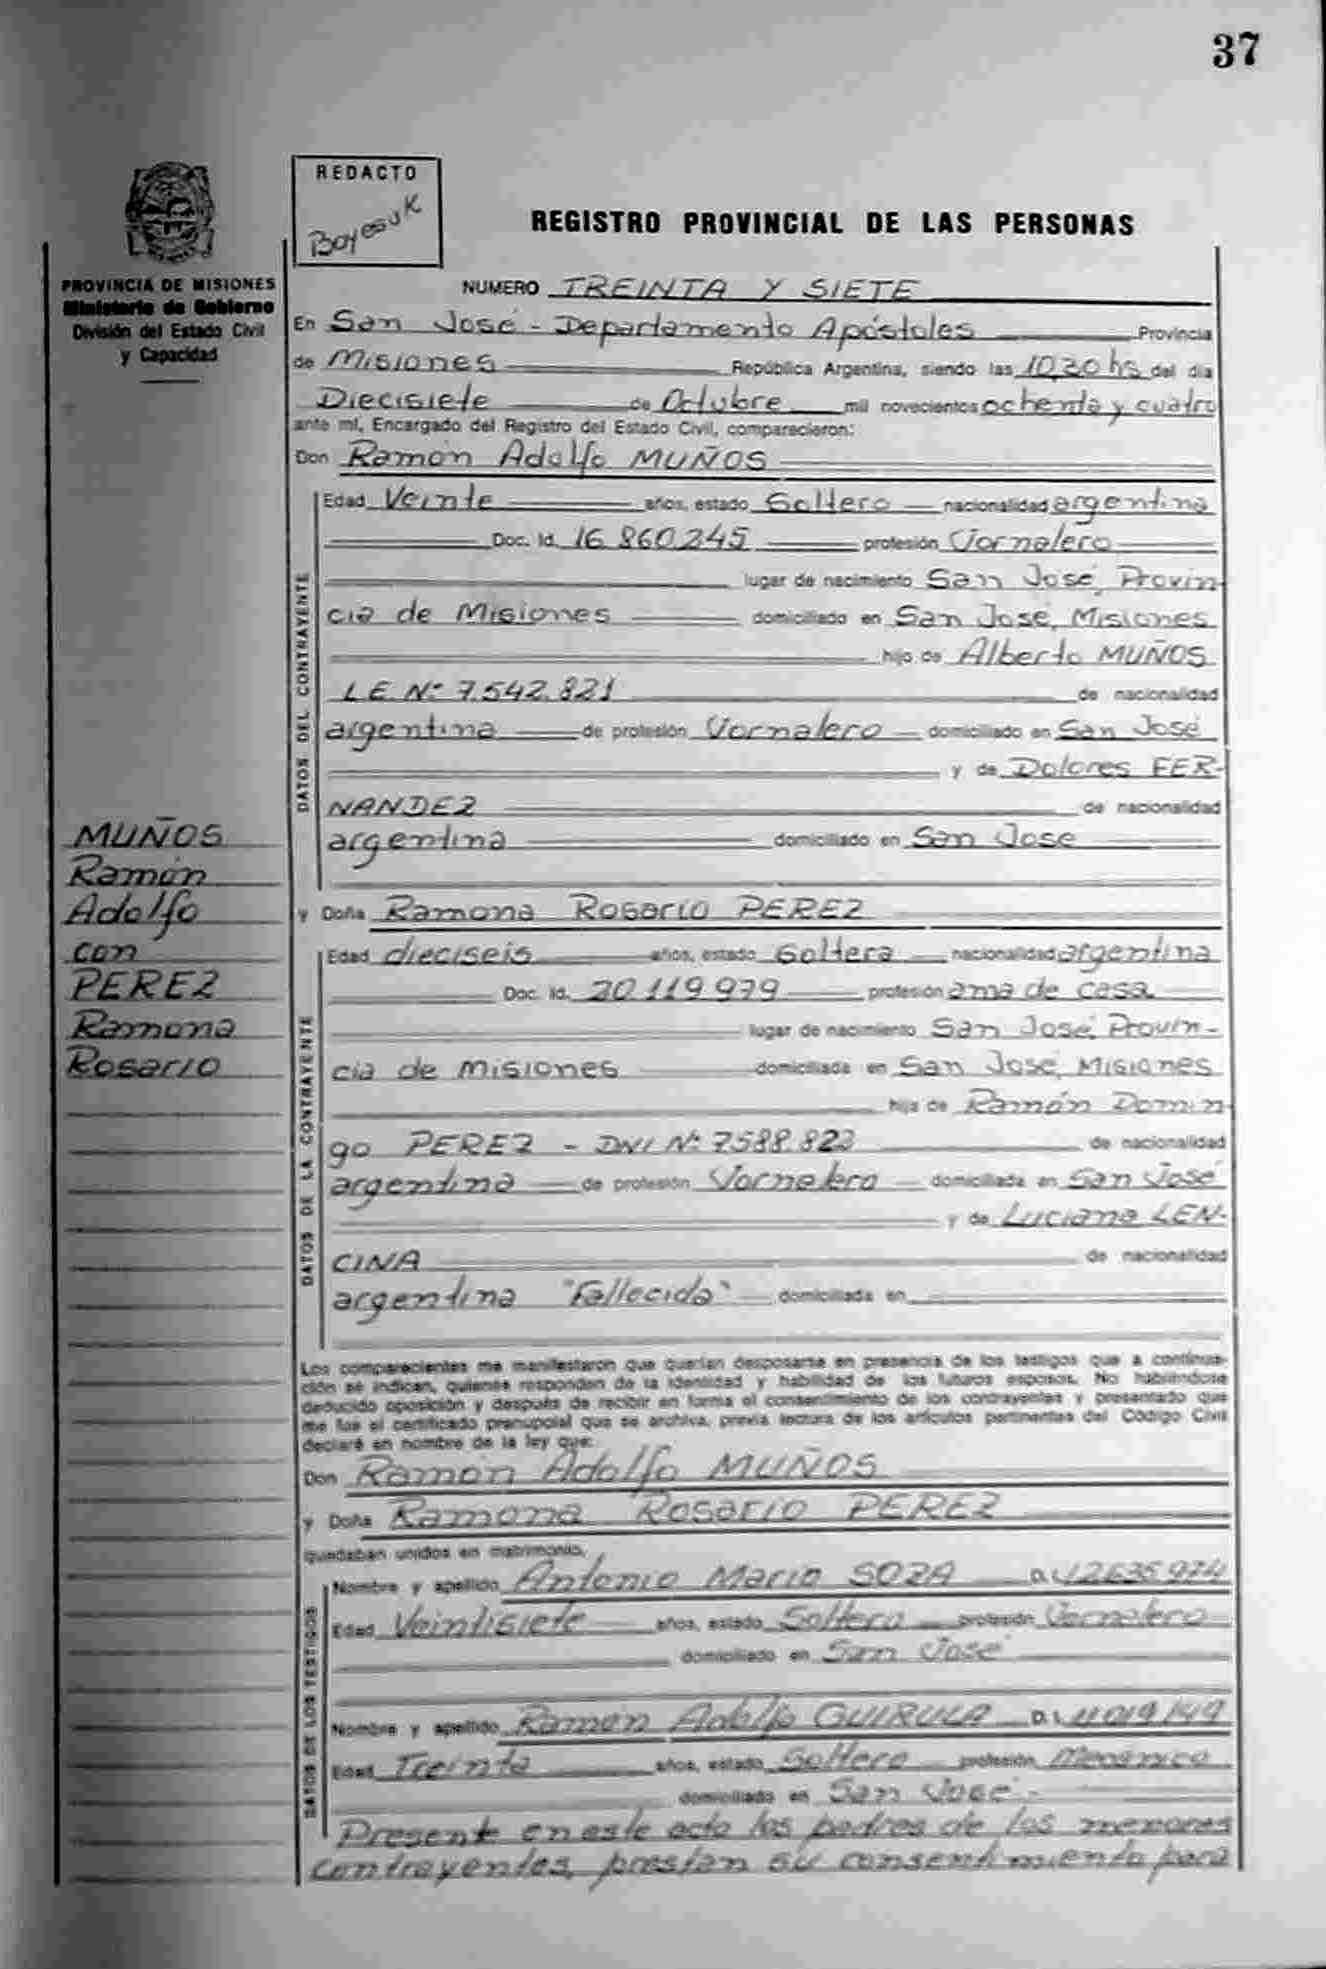 37
REDACTO
Boyesuk
REGISTRO PROVINCIAL DE LAS PERSONAS
PROVINCIA DE MISIONES
Ministerio de Gobierno
División del Estado Civil
y Capacidad
NUMERO TREINTA Y SIETE
En San José - Departamento Apóstoles Provincia
de Misiones República Argentina, siendo las 10,30 hs del día
Diecisiete de Octubre mil novecientos ochenta y cuatro
ante mí, Encargado del Registro del Estado Civil, comparecieron:
Don Ramón Adolfo MUÑOS
DATOS DEL CONTRAYENTE
Edad Veinte años, estado Soltero nacionalidad argentina
Doc. Id. 16 860 245 profesión Jornalero
lugar de nacimiento San José, Provin
cia de Misiones domiciliado en San José, Misiones
hijo de Alberto MUÑOS
L E Nº 7.542.821 de nacionalidad
argentina de profesión Jornalero domiciliado en San José
y de Dolores FER-
NANDEZ de nacionalidad
argentina domiciliado en San Jose
MUÑOS
Ramón
Adolfo
con
PEREZ
Ramona
Rosario
y Doña Ramona Rosario PEREZ
DATOS DE LA CONTRAYENTE
Edad dieciseis años, estado Soltera nacionalidad argentina
Doc. Id. 20 119 979 profesión ama de casa
lugar de nacimiento San José, Provin-
cia de Misiones domiciliada en San José, Misiones
hija de Ramón Domin-
go PEREZ - DNI Nº 7588.822 de nacionalidad
argentina de profesión Jornalero domiciliada en San José
y de Luciana LEN-
CINA de nacionalidad
argentina "Fallecida" domiciliada en
Los comparecientes me manifestaron que querían desposarse en presencia de los testigos que a continua-
ción se indican, quienes responden de la identidad y habilidad de los futuros esposos. No habiéndose
deducido oposición y después de recibir en forma el consentimiento de los contrayentes y presentado que
me fue el certificado prenupcial que se archiva, previa lectura de los artículos pertinentes del Código Civil
declaré en nombre de la ley que:
Don Ramón Adolfo MUÑOS
y Doña Ramona Rosario PEREZ
quedaban unidos en matrimonio.
DATOS DE LOS TESTIGOS
Nombre y apellido Antonio Mario SOZA D.I. 12.635.974
Edad Veintisiete años, estado Soltero profesión Jornalero
domiciliado en San José
Nombre y apellido Ramón Adolfo GUIRULA D.I. 11 019 149
Edad Treinta años, estado Soltero profesión Mecánico
domiciliado en San José -
Presente en este acto los padres de los menores
contrayentes, prestan su consentimiento para